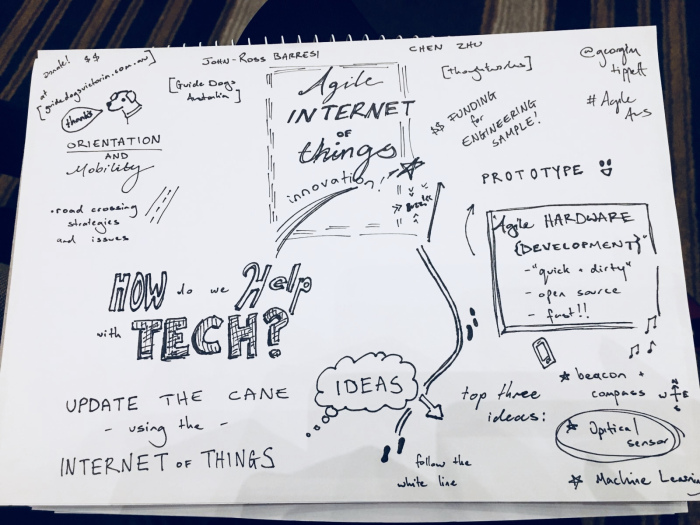 Donate! $$
at
[guidedogsvictoria.com.au]
thanks
JOHN-ROSS BARRESI
[Guide Dogs
Australia]
CHEN ZHU
[thoughtworks]
@georgin
tippett
# Agile
Aus
Agile
INTERNET
OF
things
innovation!
ORIENTATION
AND
Mobility
• road crossing
strategies
and issues
$$ FUNDING
for
ENGINEERING
SAMPLE!
PROTOTYPE
"Agile HARDWARE
{DEVELOPMENT}"
- "quick + dirty"
- open source
- fast!!
HOW do we Help
with TECH?
UPDATE THE CANE
- using the -
INTERNET OF THINGS
IDEAS
follow the
white line
top three
ideas:
beacon +
compass
N
W E
S
Optical
sensor
Machine Learning